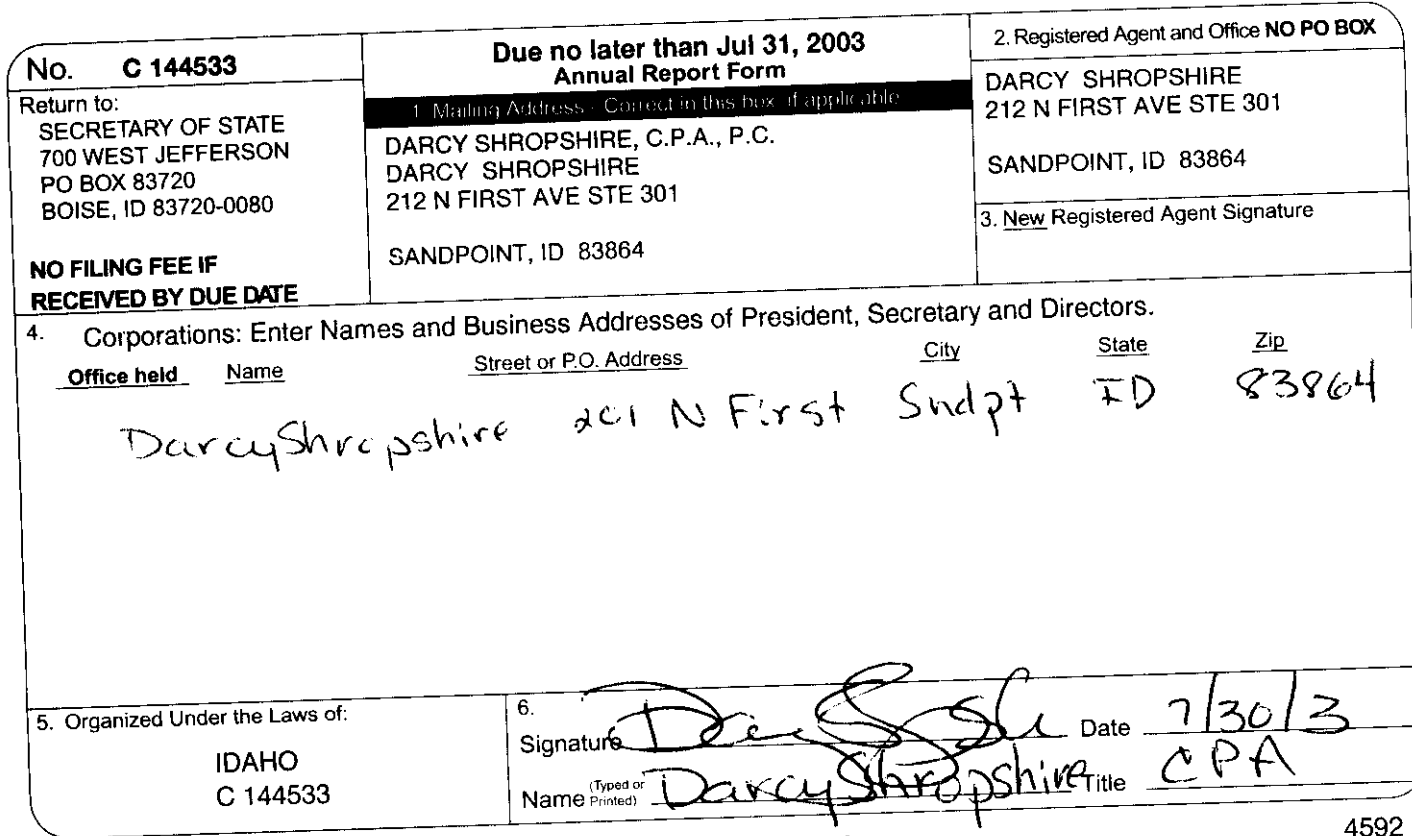 No. C 144533
Return to:
SECRETARY OF STATE
700 WEST JEFFERSON
PO BOX 83720
BOISE, ID 83720-0080
NO FILING FEE IF
RECEIVED BY DUE DATE
Due no later than Jul 31, 2003
Annual Report Form
1. Mailing Address - Correct in this box, if applicable
DARCY SHROPSHIRE, C.P.A., P.C.
DARCY SHROPSHIRE
212 N FIRST AVE STE 301
SANDPOINT, ID 83864
2. Registered Agent and Office NO PO BOX
DARCY SHROPSHIRE
212 N FIRST AVE STE 301
SANDPOINT, ID 83864
3. New Registered Agent Signature
4. Corporations: Enter Names and Business Addresses of President, Secretary and Directors.
Office held Name Street or P.O. Address City State Zip
Darcy Shropshire 201 N First Sndpt ID 83864
5. Organized Under the Laws of:
IDAHO
C 144533
6.
Signature Date 7/30/3
Name (Typed or Printed) Darcy Shropshire Title CPA
4592